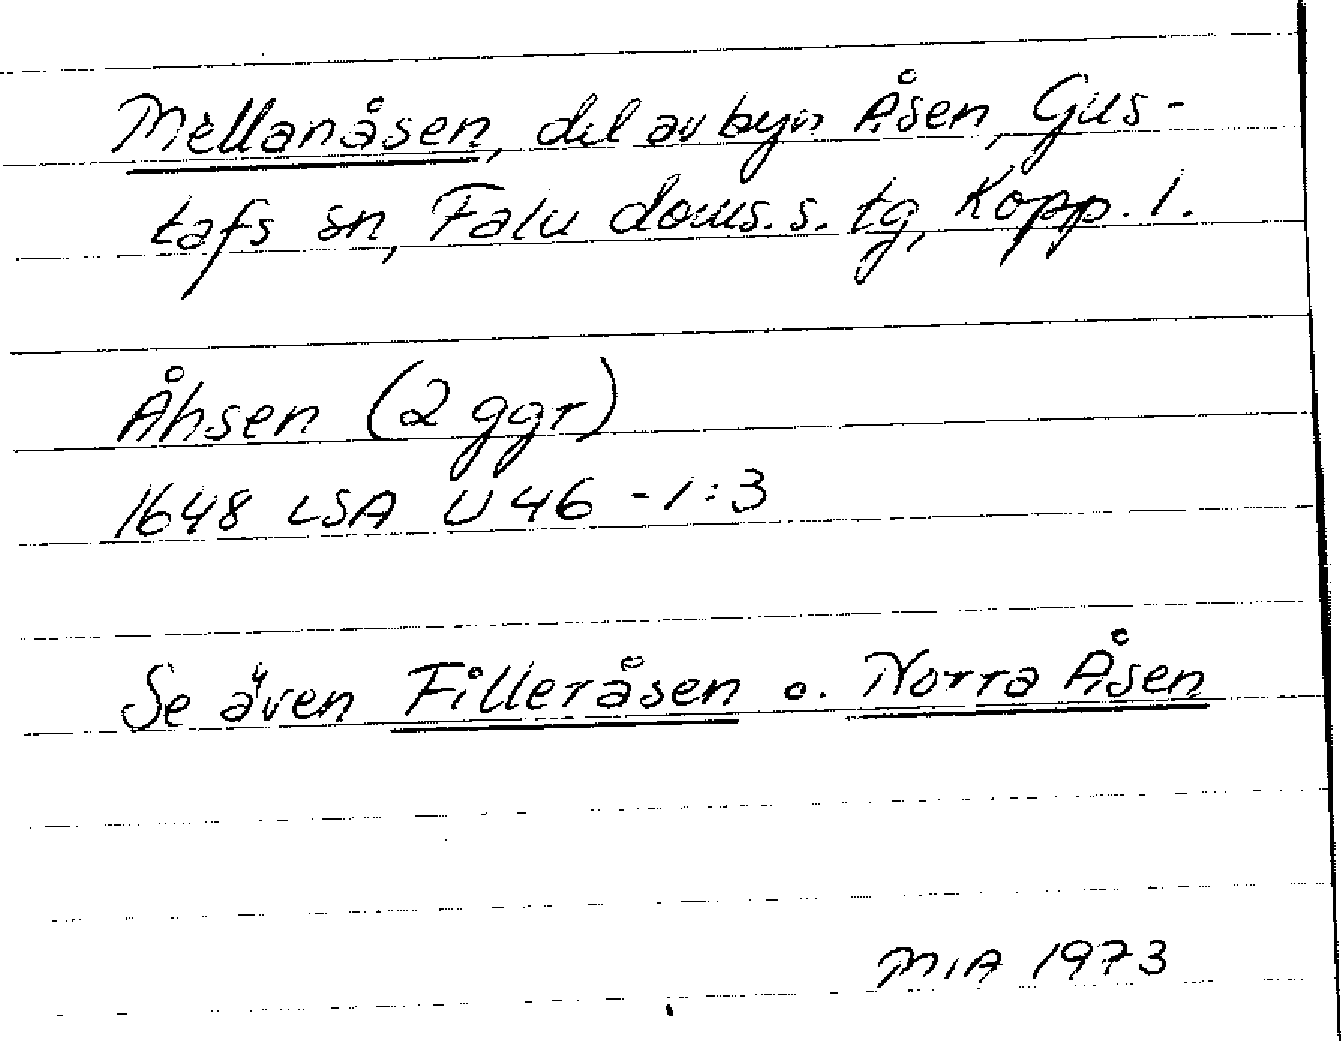 Mellanåsen, del av byn Åsen, Gus-
tafs sn, Falu doms. s. tg, Kopp. l.
Åhsen (2 ggr)
1648 LSA U 46 - 1:3
Se även Filleråsen o. Norra Åsen
MIA 1973